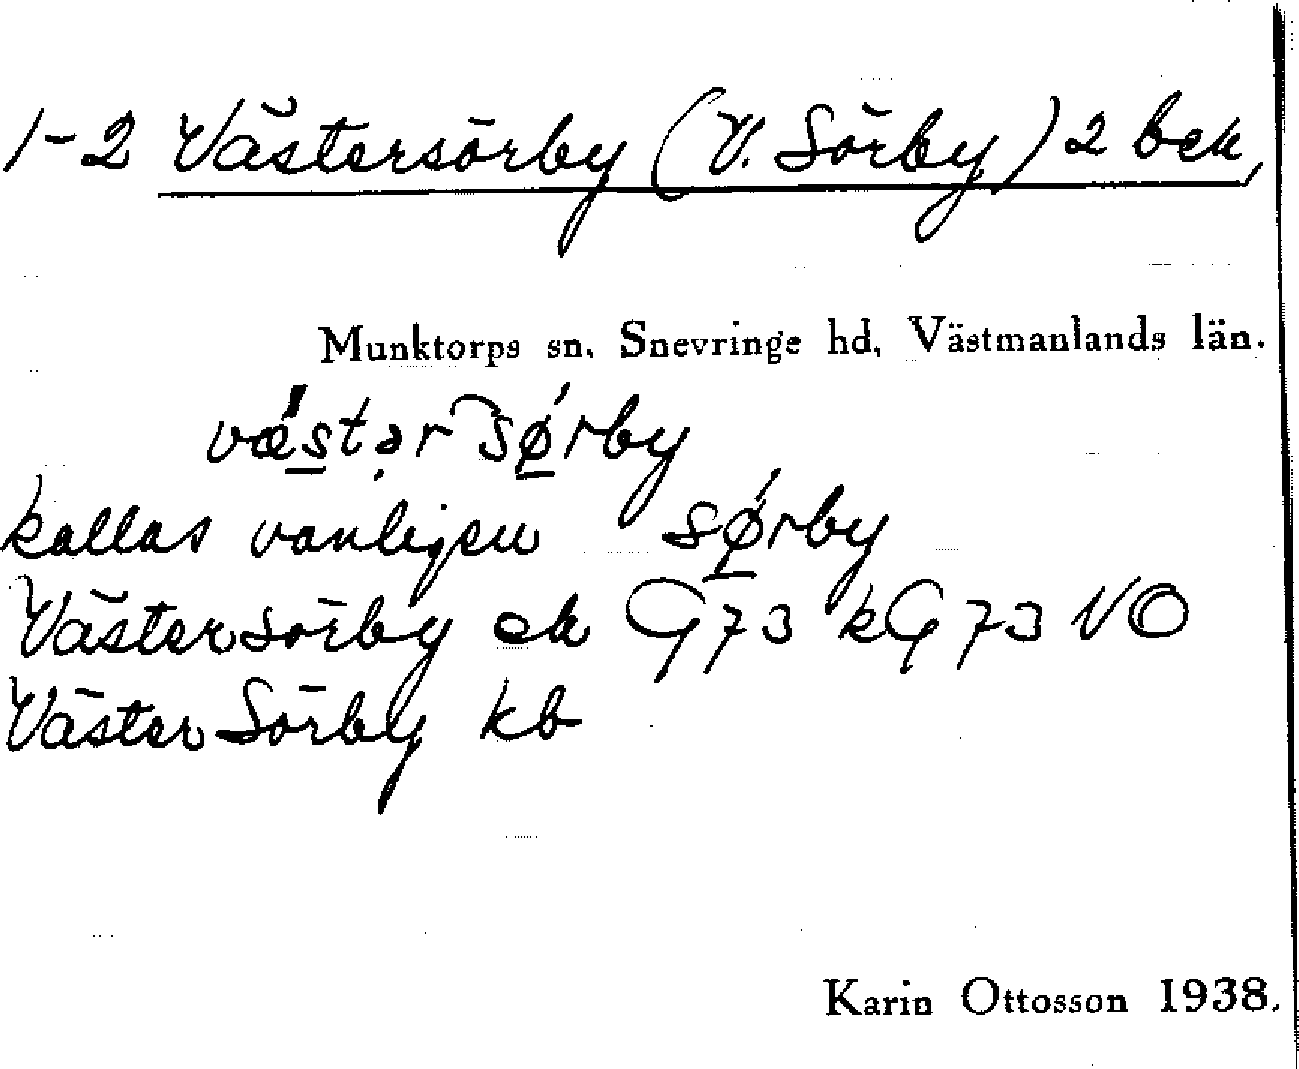 1-2 Västersörby (V. Sörby) 2 bek,
Munktorps sn, Snevringe hd, Västmanlands län.
væstər sørby
kallas vanligen sørby
Västersörby ek G73 kG73 NO
Väster Sörby kb
Karin Ottosson 1938.